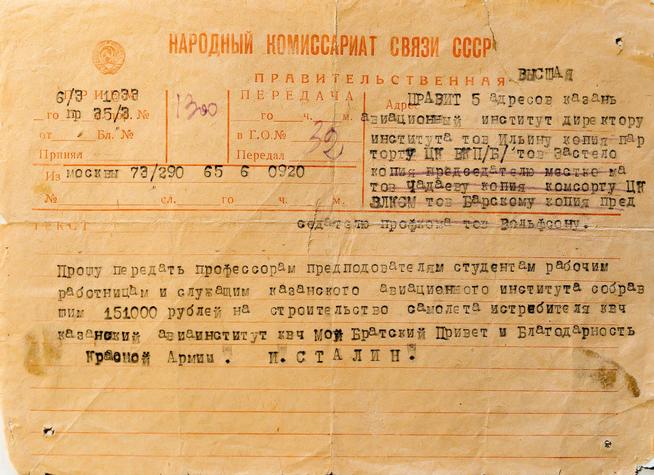 НАРОДНЫЙ КОМИССАРИАТ СВЯЗИ СССР
ПРАВИТЕЛЬСТВЕННАЯ ВЫСШАЯ
ПРИЕМ
6/3 1033
го пр 35/3 №
от Бл. №
Принял
1300
ПЕРЕДАЧА
го ч. м.
в Г.О.№ 32
Передал
Адрес
ПРАВИТ 5 адресов казань
авиационный институт директору
института тов Ильину копия пар
торту ЦК ВКП/Б/ тов Застело
копия председателю местко ма
тов Чадаеву копия комсоргу ЦК
ВЛКСМ тов Барскому копия пред
седателю профкома тов Вольфсону.
Из москвы 73/290 65 6 0920
№ сл. го ч. м.
ТЕКСТ
Прошу передать профессорам предподователям студентам рабочим
работницам и служащим казанского авиационного института собрав
шим 151000 рублей на строительство самолета истребителя квч
казанский авиаинститут квч Мой Братский Привет и Благодарность
Красной Армии. И.СТАЛИН.